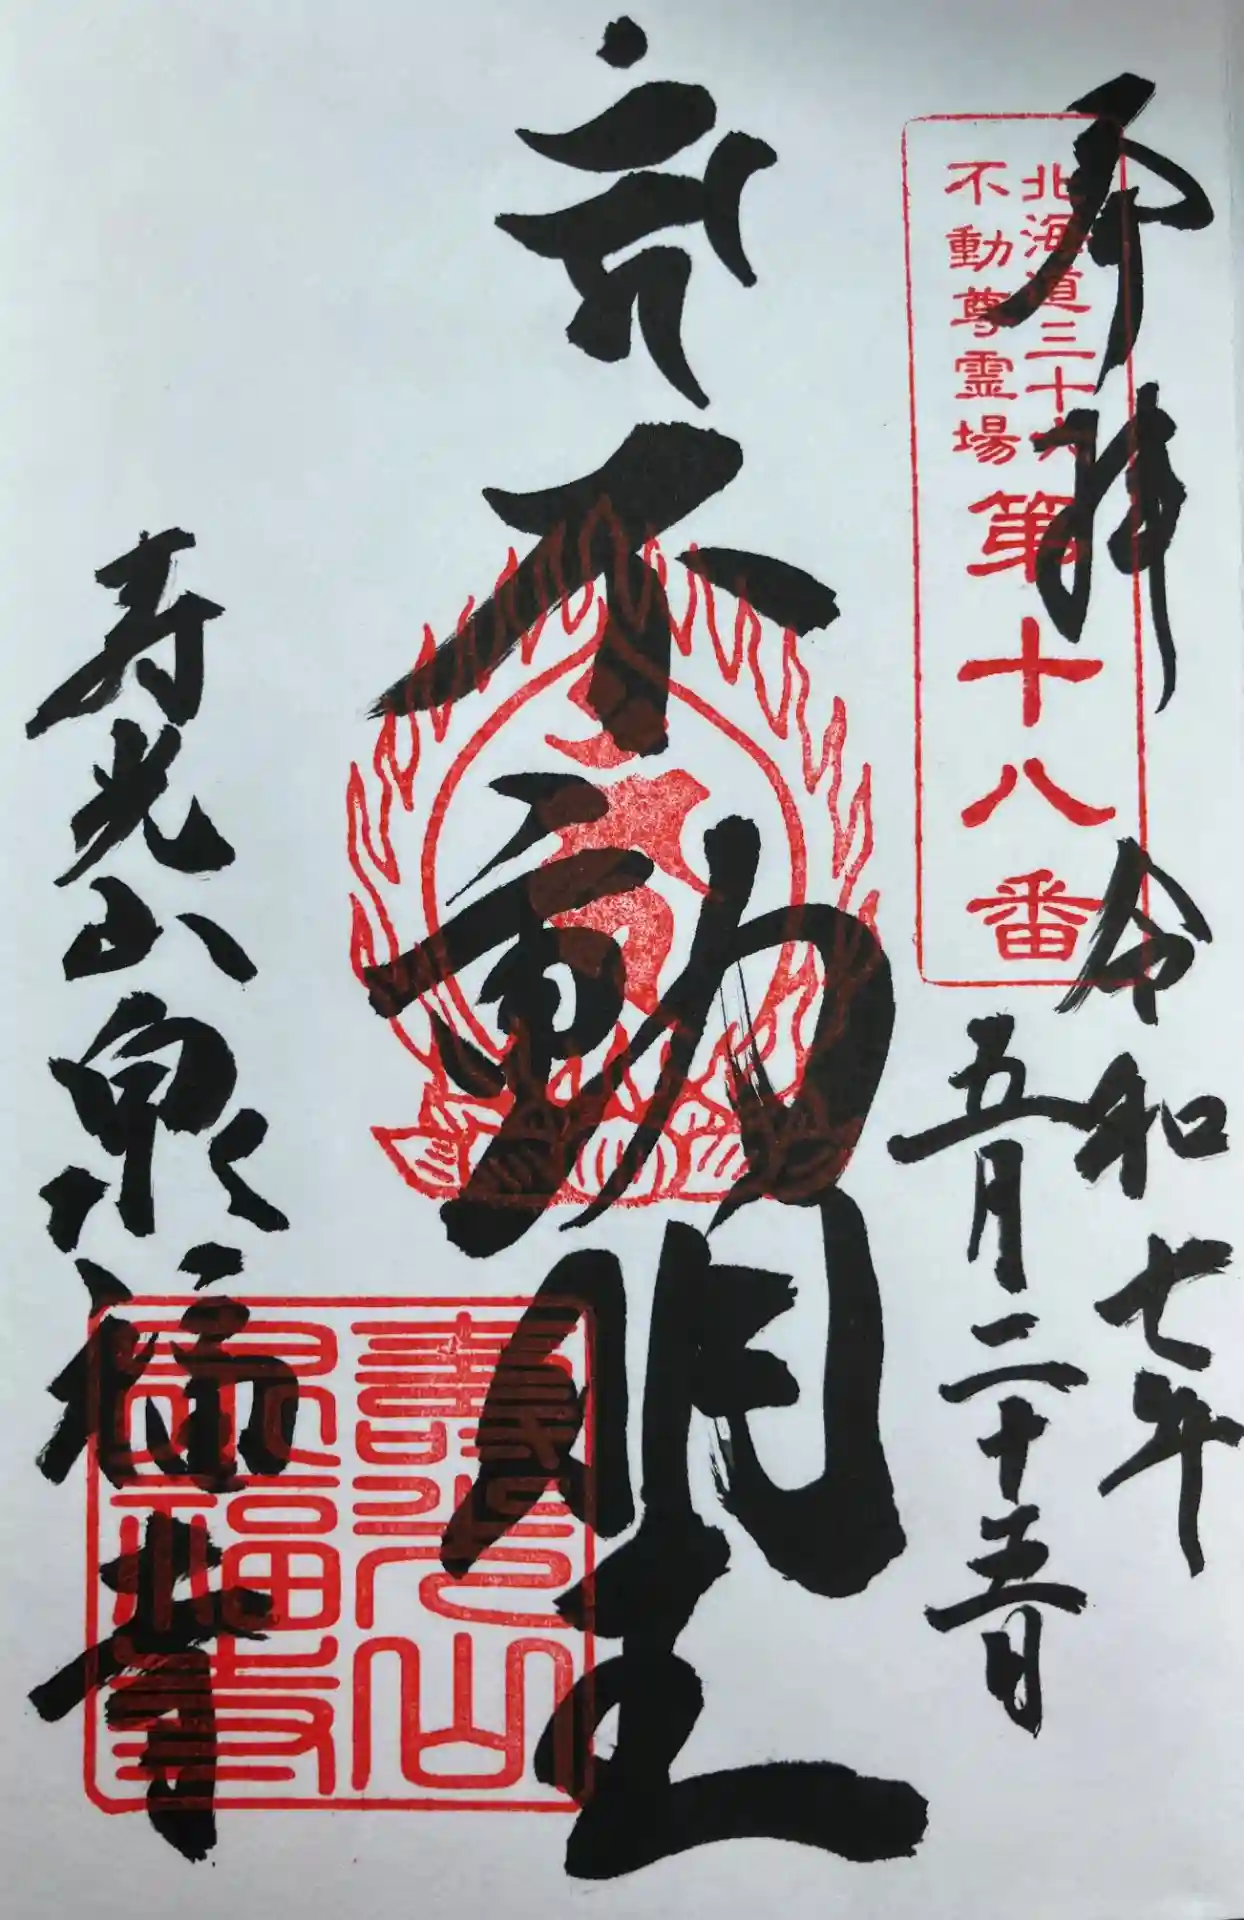 奉拝
北海道三十六
不動尊霊場
第十八番
令和七年
五月二十五日
不動明王
寿光山泉福寺
寿光山
泉福寺